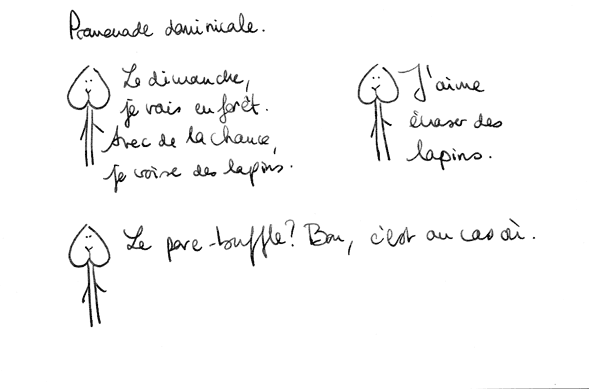 Promenade dominicale.
Le dimanche,
je vais en forêt.
Avec de la chance,
je croise des lapins.
J'aime
écraser des
lapins.
Le pare-buffle? Bon, c'est au cas où.